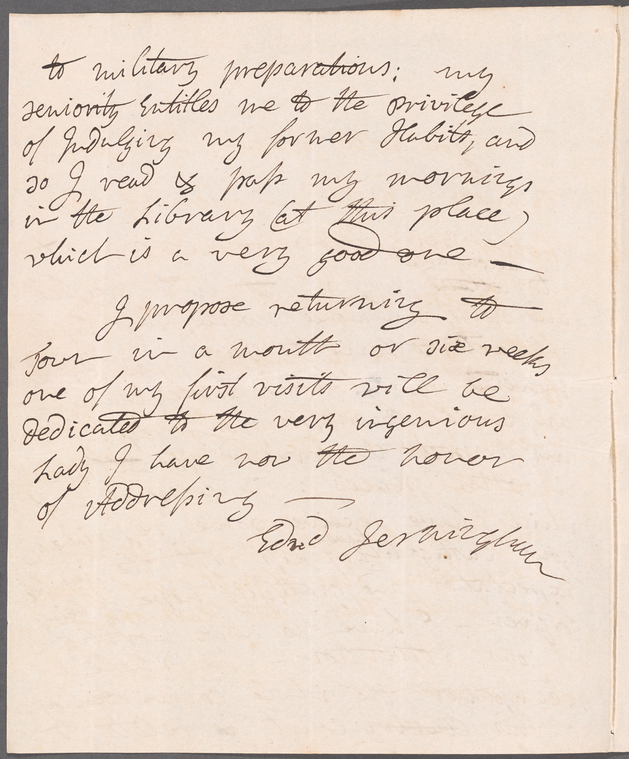 to military preparations: my
seniority Entitles me to the privilege
of Indulging my former Habits, and
so I read & pass my mornings
in the Library (at this place)
which is a very good one —
I propose returning to
Town in a month or six weeks
one of my first visits will be
dedicated to the very ingenious
Lady I have now the honor
of Addressing —
Edwd Jerningham